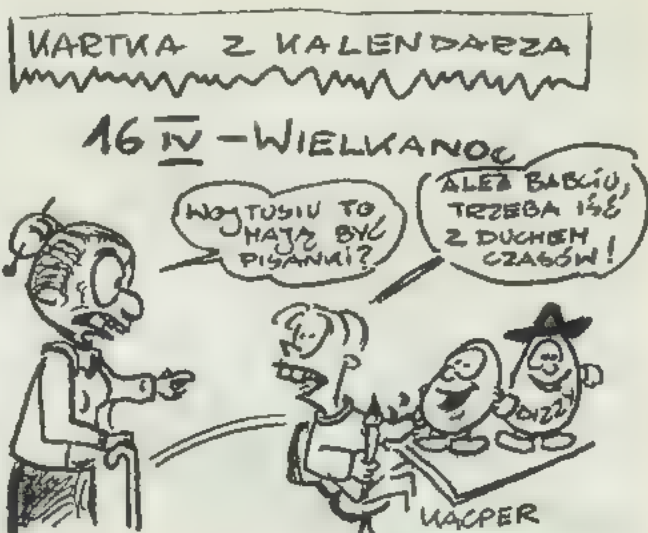 KARTKA Z KALENDARZA
16 IV - WIELKANOC
WOJTUSIU TO
MAJĄ BYĆ
PISANKI?
ALEŻ BABCIU,
TRZEBA IŚĆ
Z DUCHEM
CZASÓW!
DIZZY
KACPER